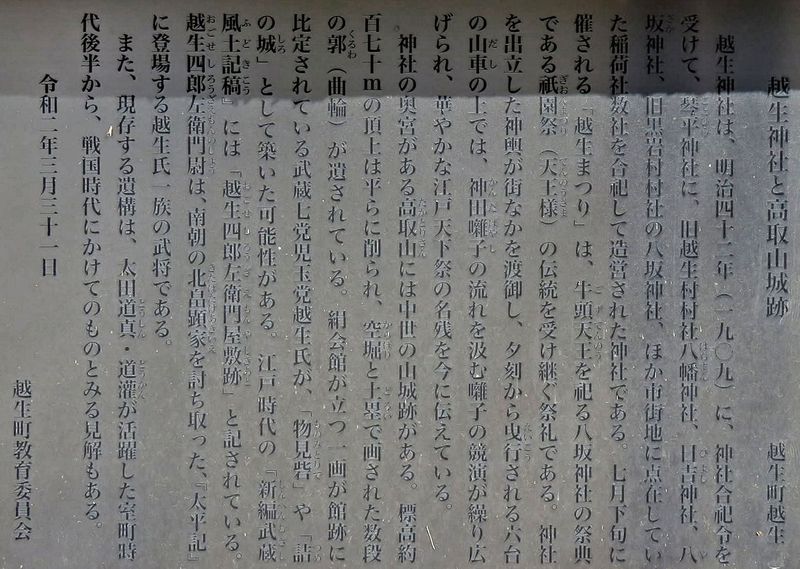 越生神社と高取山城跡　　越生町越生
越生神社は、明治四十二年（一九〇九）に、神社合祀令を
受けて、琴平神社に、旧越生村村社八幡神社、日吉神社、八
坂神社、旧黒岩村村社の八坂神社、ほか市街地に点在してい
た稲荷社数社を合祀して造営された神社である。七月下旬に
催される「越生まつり」は、牛頭天王を祀る八坂神社の祭典
である祇園祭（天王様）の伝統を受け継ぐ祭礼である。神社
を出立した神輿が街なかを渡御し、夕刻から曳行される六台
の山車の上では、神田囃子の流れを汲む囃子の競演が繰り広
げられ、華やかな江戸天下祭の名残を今に伝えている。
神社の奥宮がある高取山には中世の山城跡がある。標高約
百七十ｍの頂上は平らに削られ、空堀と土塁で画された数段
の郭（曲輪）が遺されている。絹会館が立つ一画が館跡に
比定されている武蔵七党児玉党越生氏が、「物見砦」や「詰
の城」として築いた可能性がある。江戸時代の『新編武蔵
風土記稿』には「越生四郎左衛門屋敷跡」と記されている。
越生四郎左衛門尉は、南朝の北畠顕家を討ち取った、『太平記』
に登場する越生氏一族の武将である。
また、現存する遺構は、太田道真・道灌が活躍した室町時
代後半から、戦国時代にかけてのものとみる見解もある。
令和二年三月三十一日
越生町教育委員会